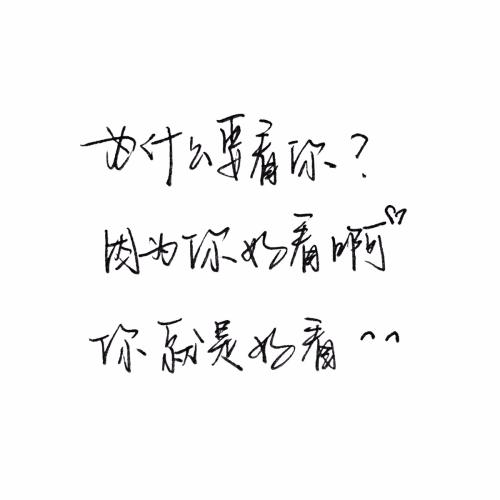 为什么要看你？
因为你好看啊♡
你就是好看^^